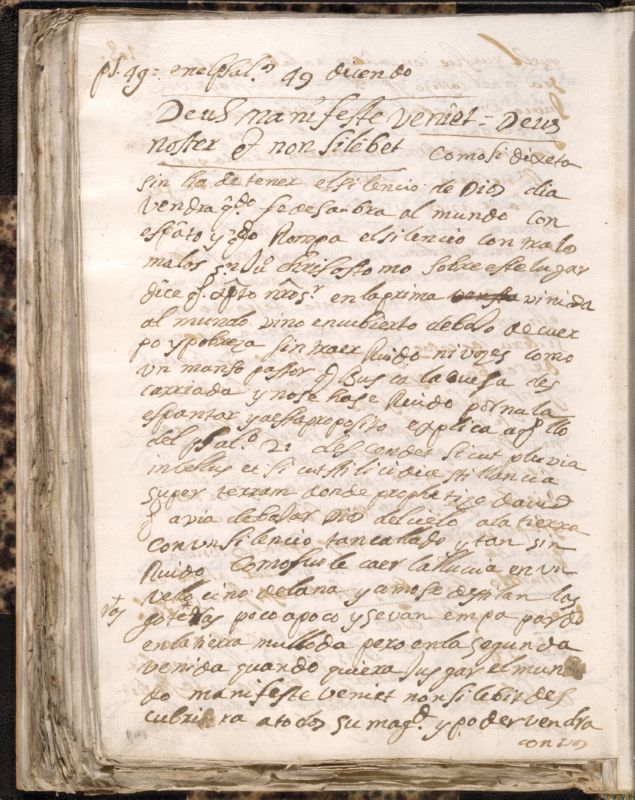 ps. 49 = en el psal.º 49 diciendo
Deus manifeste veniet = Deus
noster et non silebet como si dixera
sin ha de tener el silencio de Dios dia
vendra qdo se descubra al mundo con
espãto y qdo Rompa el silencio con
malos sn Juº chrisostomo sobre este lugar
dice q xpto nrõ sr en la prima venida
al mundo vino encubierto debaxo de cuer
po y pobreza sin traer Ruido ni vozes como
un manso pastor q Busca la oveja des
carriada y no se hase Ruido por no la
espantar y a esta proposito explica aqllo
del psal.º 71 descendet sicut pluvia
in vellus et sicut stilicidia stillancia
super terram donde prophetizo david
q avia de baxar Dios del cielo a la tierra
con un silencio tan callado y tan sin
Ruido como suele caer la lluvia en un
vellocino de lana y como se destilan las
gotas poco a poco y se van empapando
en la tierra mullida pero en la segunda
venida quando quiera jusgar el mun
do manifeste veniet non silebit des
cubrira a todos su magd y poder vendra
con vos